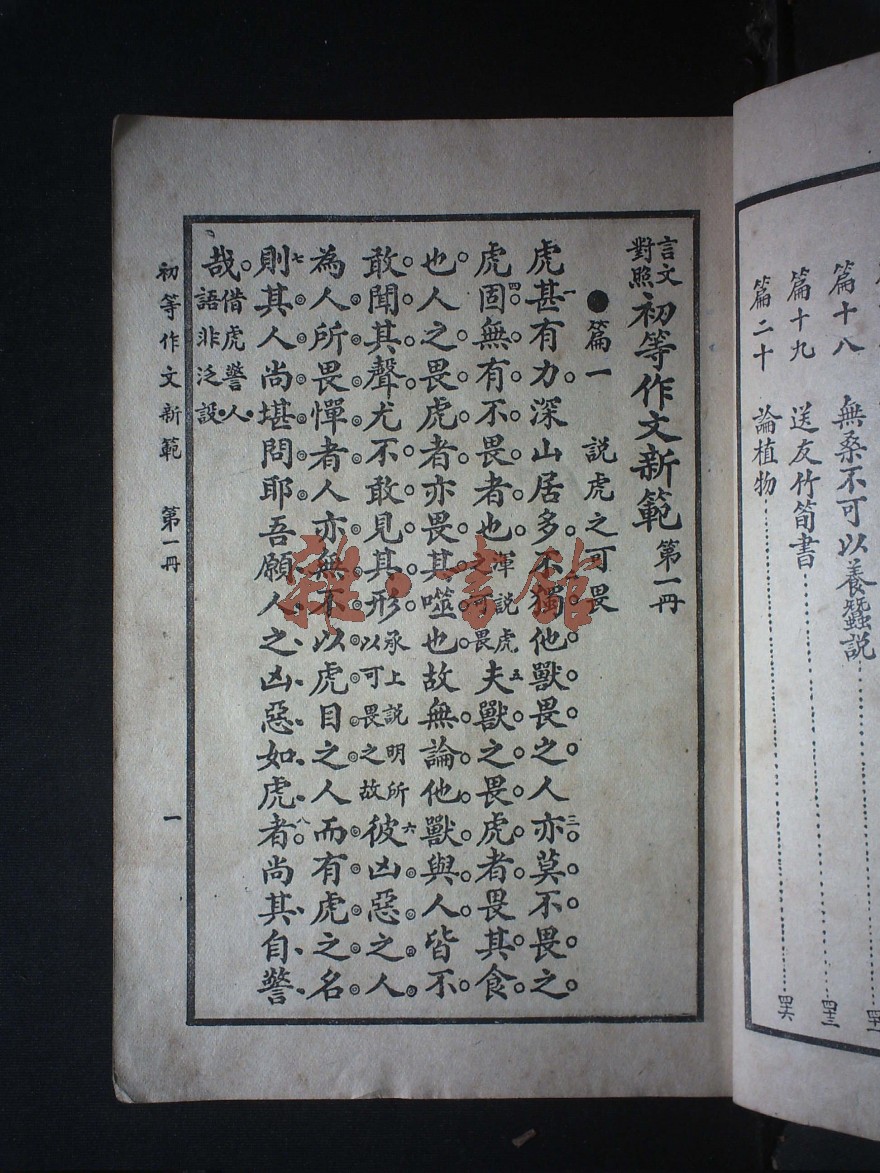 篇十八　無桑不可以養蠶說
篇十九　送友竹筍書
篇二十　論植物
言文對照初等作文新範　第一冊
●篇一　說虎之可畏
虎甚有力深山居多不獨他獸畏之人亦莫不畏之
虎固無有不畏者也渾說虎之可畏夫獸之畏虎者畏其食
也人之畏虎者亦畏其噬也故無論他獸與人皆不
敢聞其聲尤不敢見其形承上說明所以可畏之故彼凶惡之人
為人所畏憚者人亦無不以虎目之人而有虎之名
則其人尚堪問耶吾願人之凶惡如虎者尚其自警
哉借虎警人語非泛設
初等作文新範　第一冊　一
雜·書館